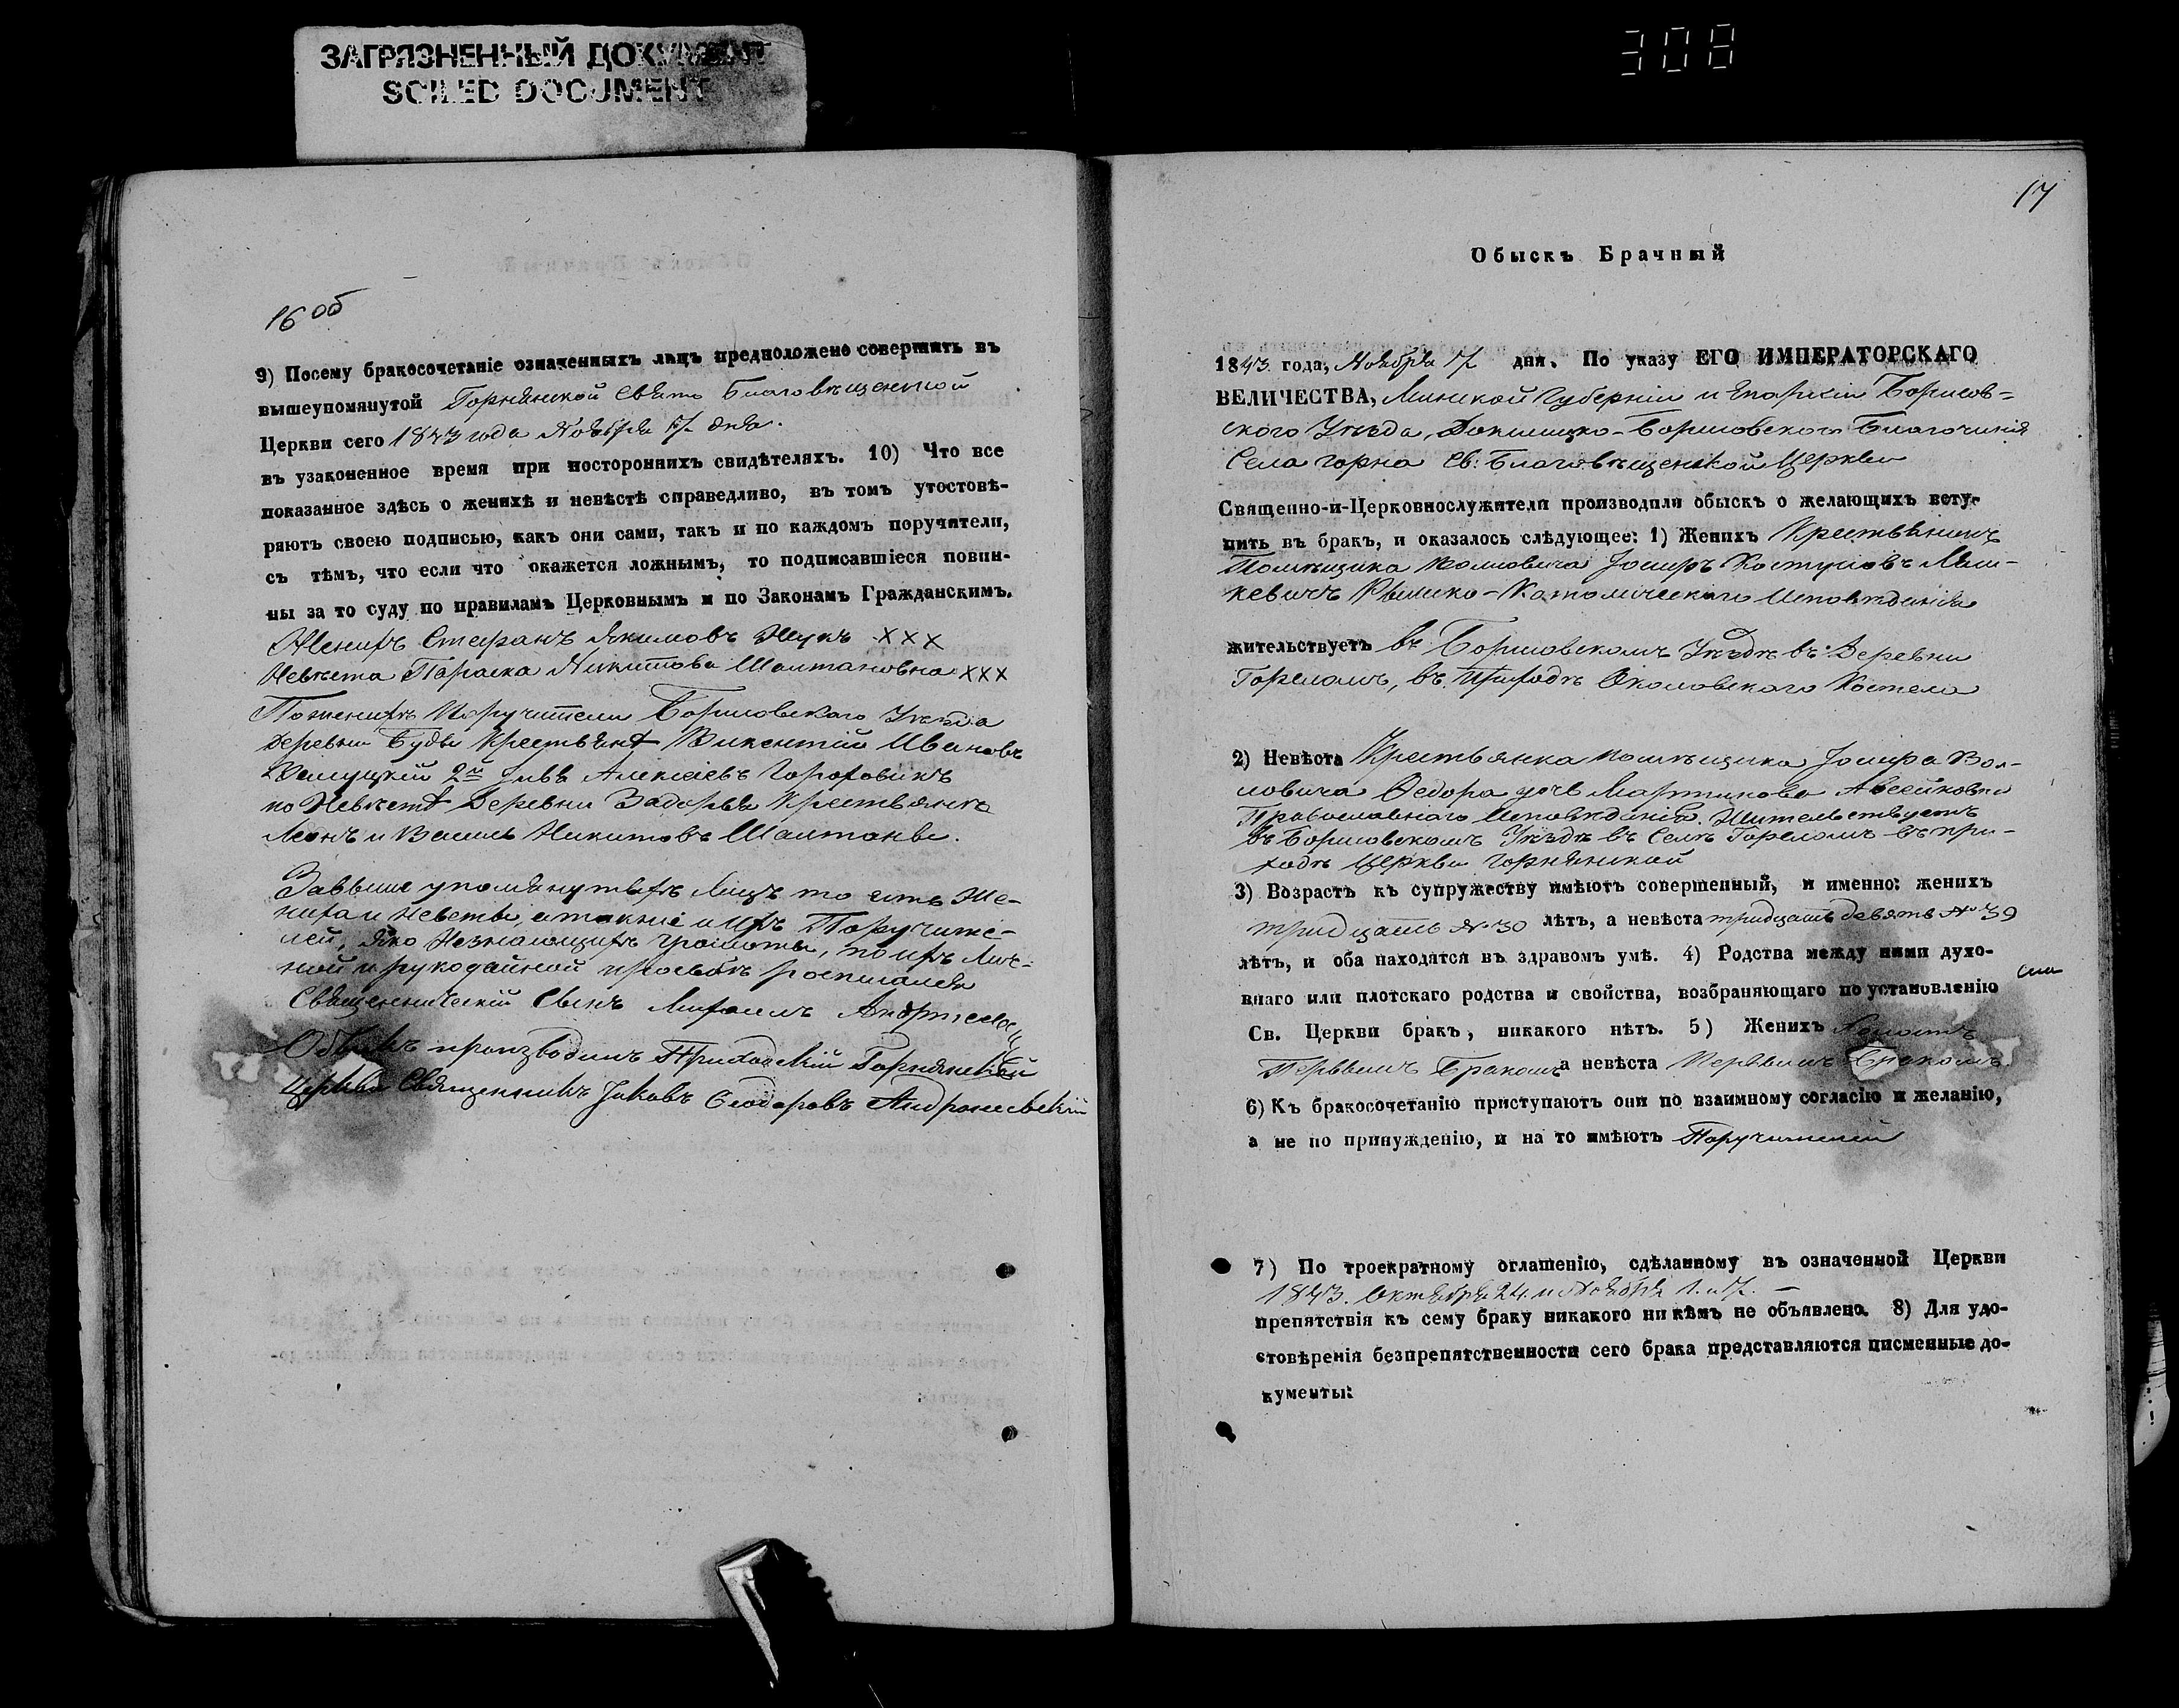 ЗАГРЯЗНЕННЫЙ ДОКУМЕНТ
SOILED DOCUMENT
308
16 об
9) Посему бракосочетаніе означенныхъ лицъ предположено совершить въ
вышеупомянутой Горнянской Свято Благовѣщенской
Церкви сего 1843 года Ноября 7/ дня.
въ узаконенное время при постороннихъ свидѣтеляхъ. 10) Что все
показанное здѣсь о женихѣ и невѣстѣ справедливо, въ томъ утостовѣ-
ряютъ своею подписью, какъ они сами, такъ и по каждомъ поручители,
съ тѣмъ, что если что окажется ложнымъ, то подписавшіеся повин-
ны за то суду по правиламъ Церковнымъ и по Законамъ Гражданскимъ.
Женихъ Стефанъ Якимовъ Жукъ ×××
Невѣста Параска Никитова Шалтановна ×××
Поженихѣ Поручители Борисовскаго Уѣзда
Деревни Буды Крестьянѣ Викентій Ивановъ
2й Алексіевъ Гороховикъ
по Невѣстѣ Деревни Задорья Крестьянѣ
и Василь Никитовъ Шалтаны.
Заввыше упомянутыхъ Лицъ то есть Же-
ниха и Невесты, а также и ихъ Поручите-
лей, яко Незнающихъ Грамоты, по ихъ Лич-
ной и рукодайной прозьбѣ росписался
Священническій Сынъ Михаилъ
Обыскъ производилъ Приходскій Горнянской
Церкви Священникъ Іаковъ Ѳеодоровъ Андрониевскій
17
Обыскъ Брачный
1843 года, Ноября 7/ дня. По указу ЕГО ИМПЕРАТОРСКАГО
ВЕЛИЧЕСТВА, Минской Губерніи и Епархіи Борисов-
ского Уѣзда, Докшицко-Борисовского Благочинія
Села Горна Св: Благовѣщенской Церкви
Священно-и-Церковнослужители производили обыскъ о желающихъ всту-
пить въ бракъ, и оказалось слѣдующее: 1) Женихъ Крестьянинъ
Помѣщика Воловича Іосифъ Лаш-
кевичъ Римско-Католическаго Исповѣданія
жительствуетъ въ Борисовскомъ Уѣздѣ въ Деревни
Гореломъ, въ Приходѣ Околовскаго Костела
2) Невѣста Крестьянка помѣщика Іосифа Вол-
ловича Ѳедора дочь Мартинова
Православнаго Исповѣданія. Жительствуетъ
въ Борисовскомъ Уѣздѣ въ Селѣ Гореломъ въ при-
ходѣ Церкви Горнянской
3) Возрастъ къ супружеству имѣютъ совершенный, и именно: женихъ
тридцать № 30 лѣтъ, а невѣста тридцать девять № 39
лѣтъ, и оба находятся въ здравомъ умѣ. 4) Родства между ними духо-
внаго или плотскаго родства и свойства, возбраняющаго по установленію
Св. Церкви бракъ, никакого нѣтъ. 5) Женихъ
Первымъ Бракомъ а невѣста Первымъ Бракомъ.
6) Къ бракосочетанію приступаютъ они по взаимному согласію и желанію,
а не по принужденію, и на то имѣютъ Поручителей
7) По троекратному оглашенію, сдѣланному въ означенной Церкви
1843. Октября 24. и Ноября 1. и 7/. —
препятствія къ сему браку никакого ни кѣмъ не объявлено. 8) Для удо-
стовѣренія безпрепятственности сего брака представляются писменные до-
кументы: